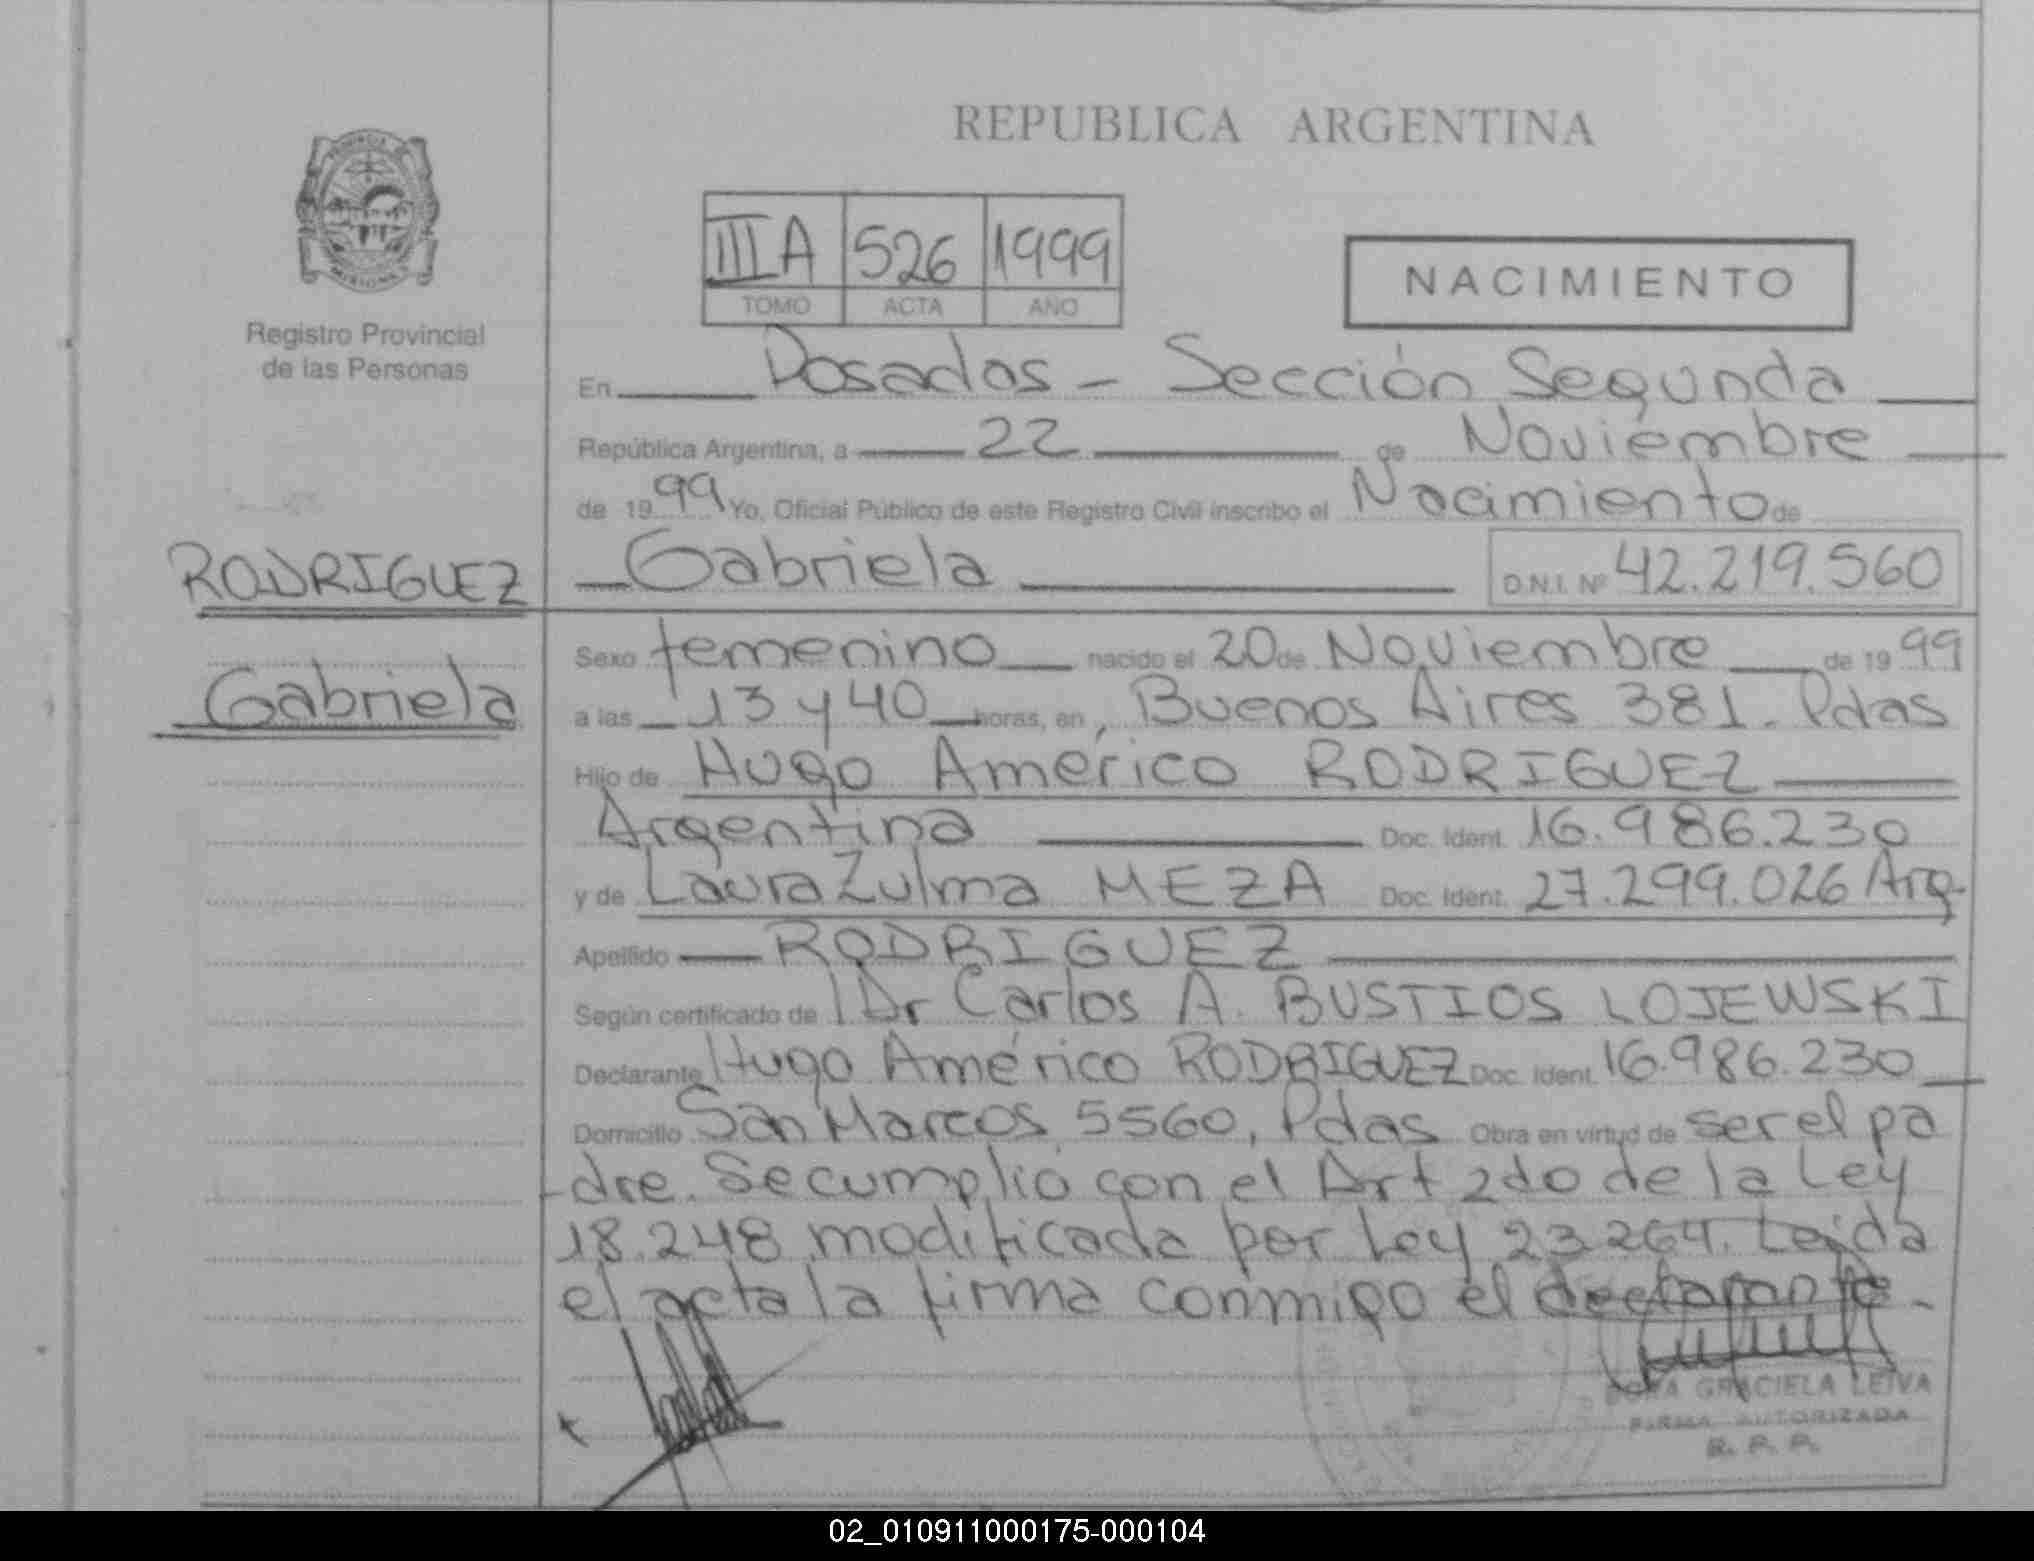 REPUBLICA ARGENTINA
IIIA 526 1999
TOMO ACTA AÑO
NACIMIENTO
Registro Provincial
de las Personas
En Posadas - Sección Segunda
República Argentina, a 22 de Noviembre
de 1999 Yo, Oficial Público de este Registro Civil inscribo el Nacimiento de
RODRIGUEZ
Gabriela D.N.I. Nº 42.219.560
Gabriela
Sexo femenino nacido el 20 de Noviembre de 1999
a las 13 y 40 horas, en, Buenos Aires 381. Pdas
Hijo de Hugo Américo RODRIGUEZ
Argentina Doc. Ident. 16.986.230
y de Laura Zulma MEZA Doc. Ident. 27.299.026 Arg-
Apellido RODRIGUEZ
Según certificado de Dr Carlos A. BUSTIOS LOJEWSKI
Declarante Hugo Américo RODRIGUEZ Doc. Ident. 16.986.230
Domicilio San Marcos 5560, Pdas Obra en virtud de ser el pa
-dre. Se cumplió con el Art 2do de la Ley
18.248 modificada por Ley 23.264. Leida
el acta la firma conmigo el declarante.-
GRACIELA LEIVA
FIRMA AUTORIZADA
R. P. P.
02_010911000175-000104